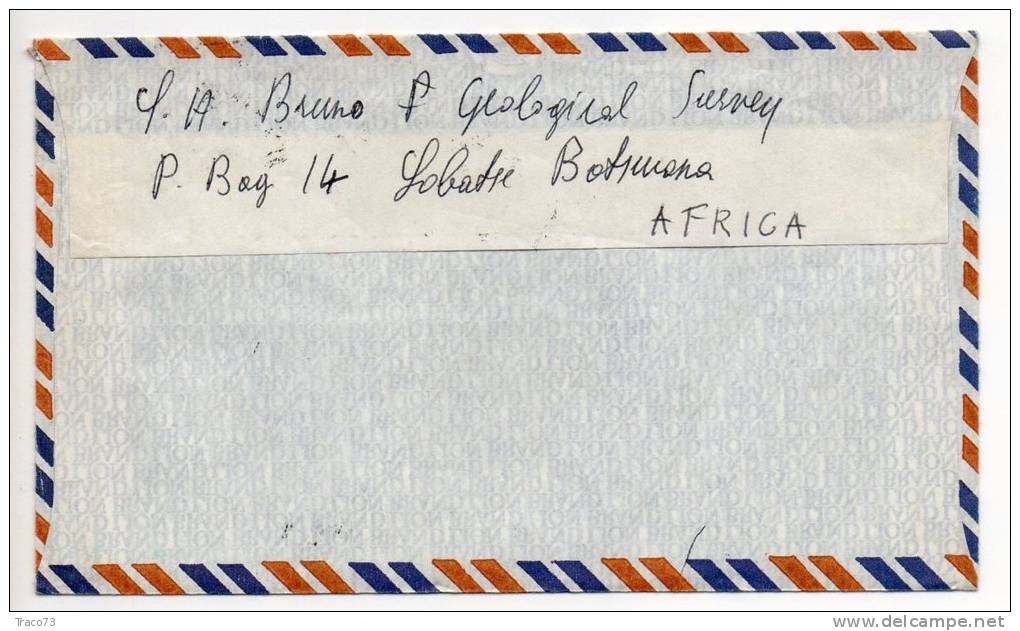 S. A. Bruno P Geological Survey
P. Bag 14 Lobatse Botswana
AFRICA
Traco73
delcampe.net